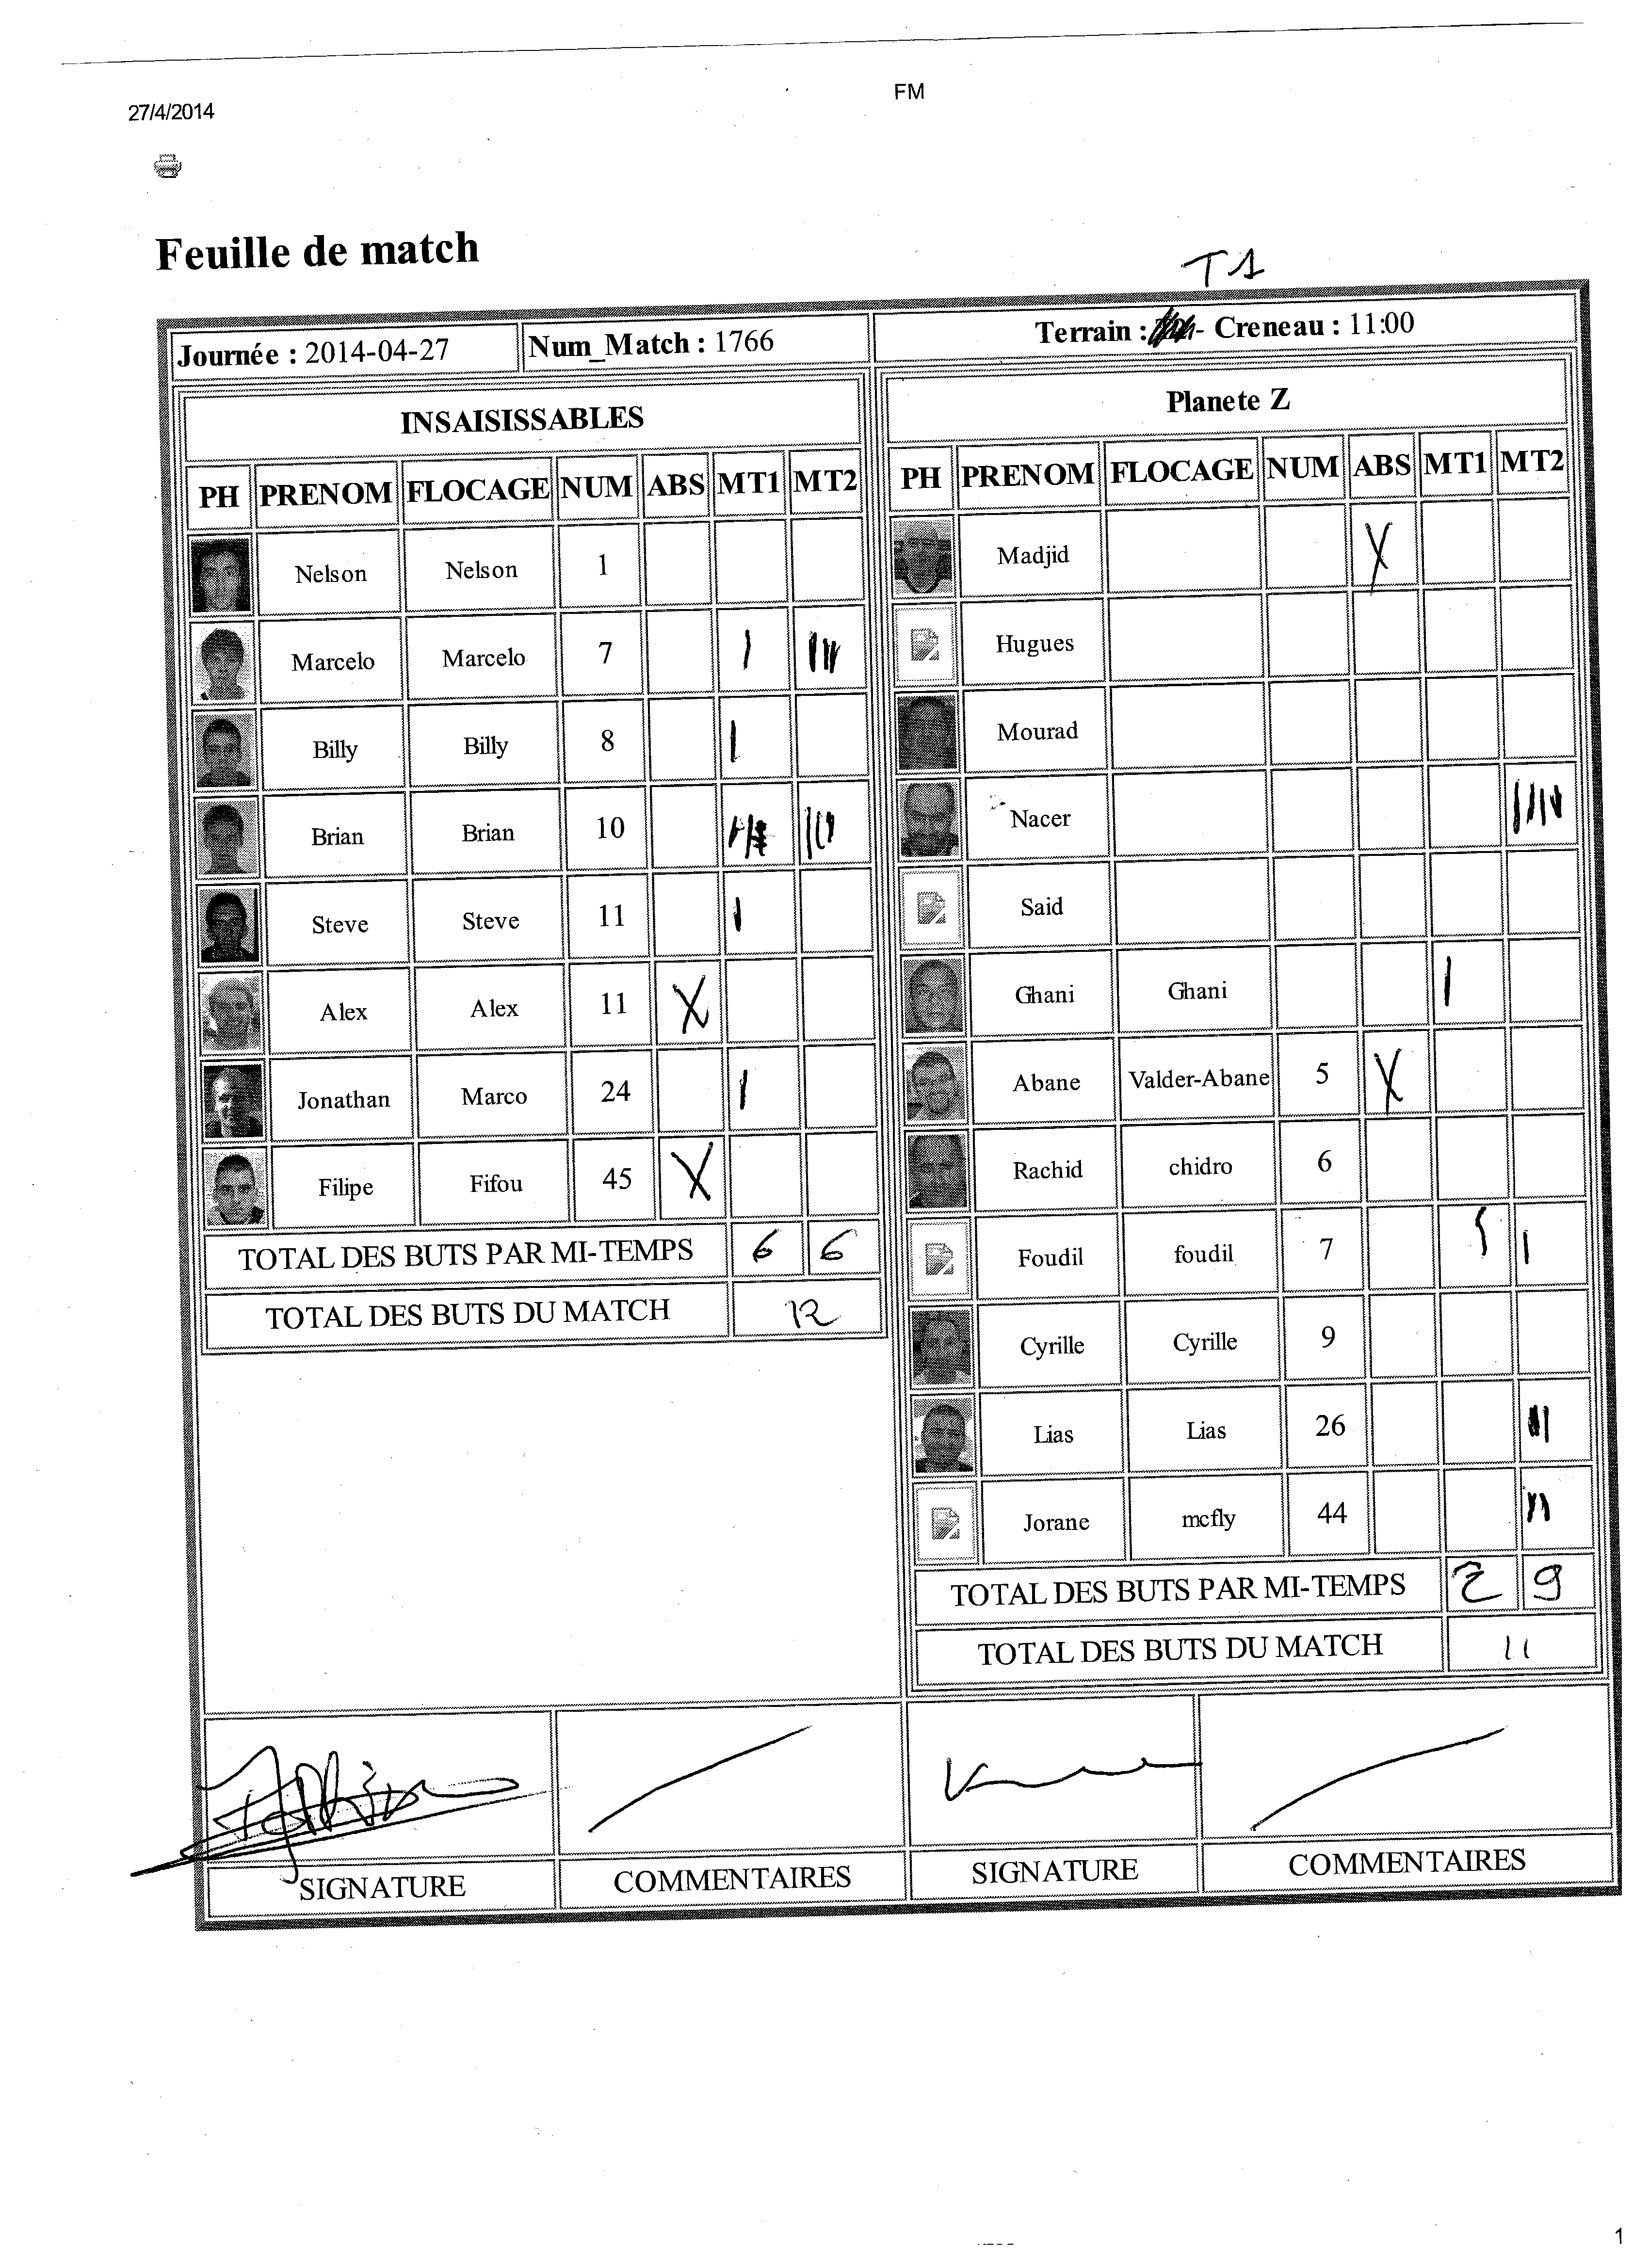 27/4/2014
FM
Feuille de match
T1
Journée : 2014-04-27 Num_Match : 1766 Terrain : - Creneau : 11:00
INSAISISSABLES
PH PRENOM FLOCAGE NUM ABS MT1 MT2
Nelson Nelson 1
Marcelo Marcelo 7 | |||
Billy Billy 8 |
Brian Brian 10 |||
Steve Steve 11 |
Alex Alex 11 X
Jonathan Marco 24 |
Filipe Fifou 45 X
TOTAL DES BUTS PAR MI-TEMPS 6 6
TOTAL DES BUTS DU MATCH 12
Planete Z
PH PRENOM FLOCAGE NUM ABS MT1 MT2
Madjid X
Hugues
Mourad
Nacer ||||
Said
Ghani Ghani |
Abane Valder-Abane 5 X
Rachid chidro 6
Foudil foudil 7 | |
Cyrille Cyrille 9
Lias Lias 26
Jorane mcfly 44 ||
TOTAL DES BUTS PAR MI-TEMPS 2 9
TOTAL DES BUTS DU MATCH 11
SIGNATURE COMMENTAIRES SIGNATURE COMMENTAIRES
1